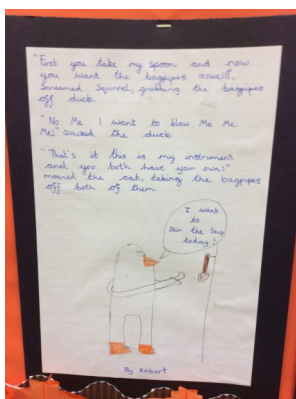 "First you take my spoon and now
you want the bagpipes aswell,
Screamed Squirrel, grabbing the bagpipes
off duck.
"No Me I want to blow Me Me
Me!" quacked the duck
"That's it this is my instrument
and you both have your own!"
moaned the cat, taking the bagpipes
off both of them
I want
to
Stir the Soup
today!
By Robert